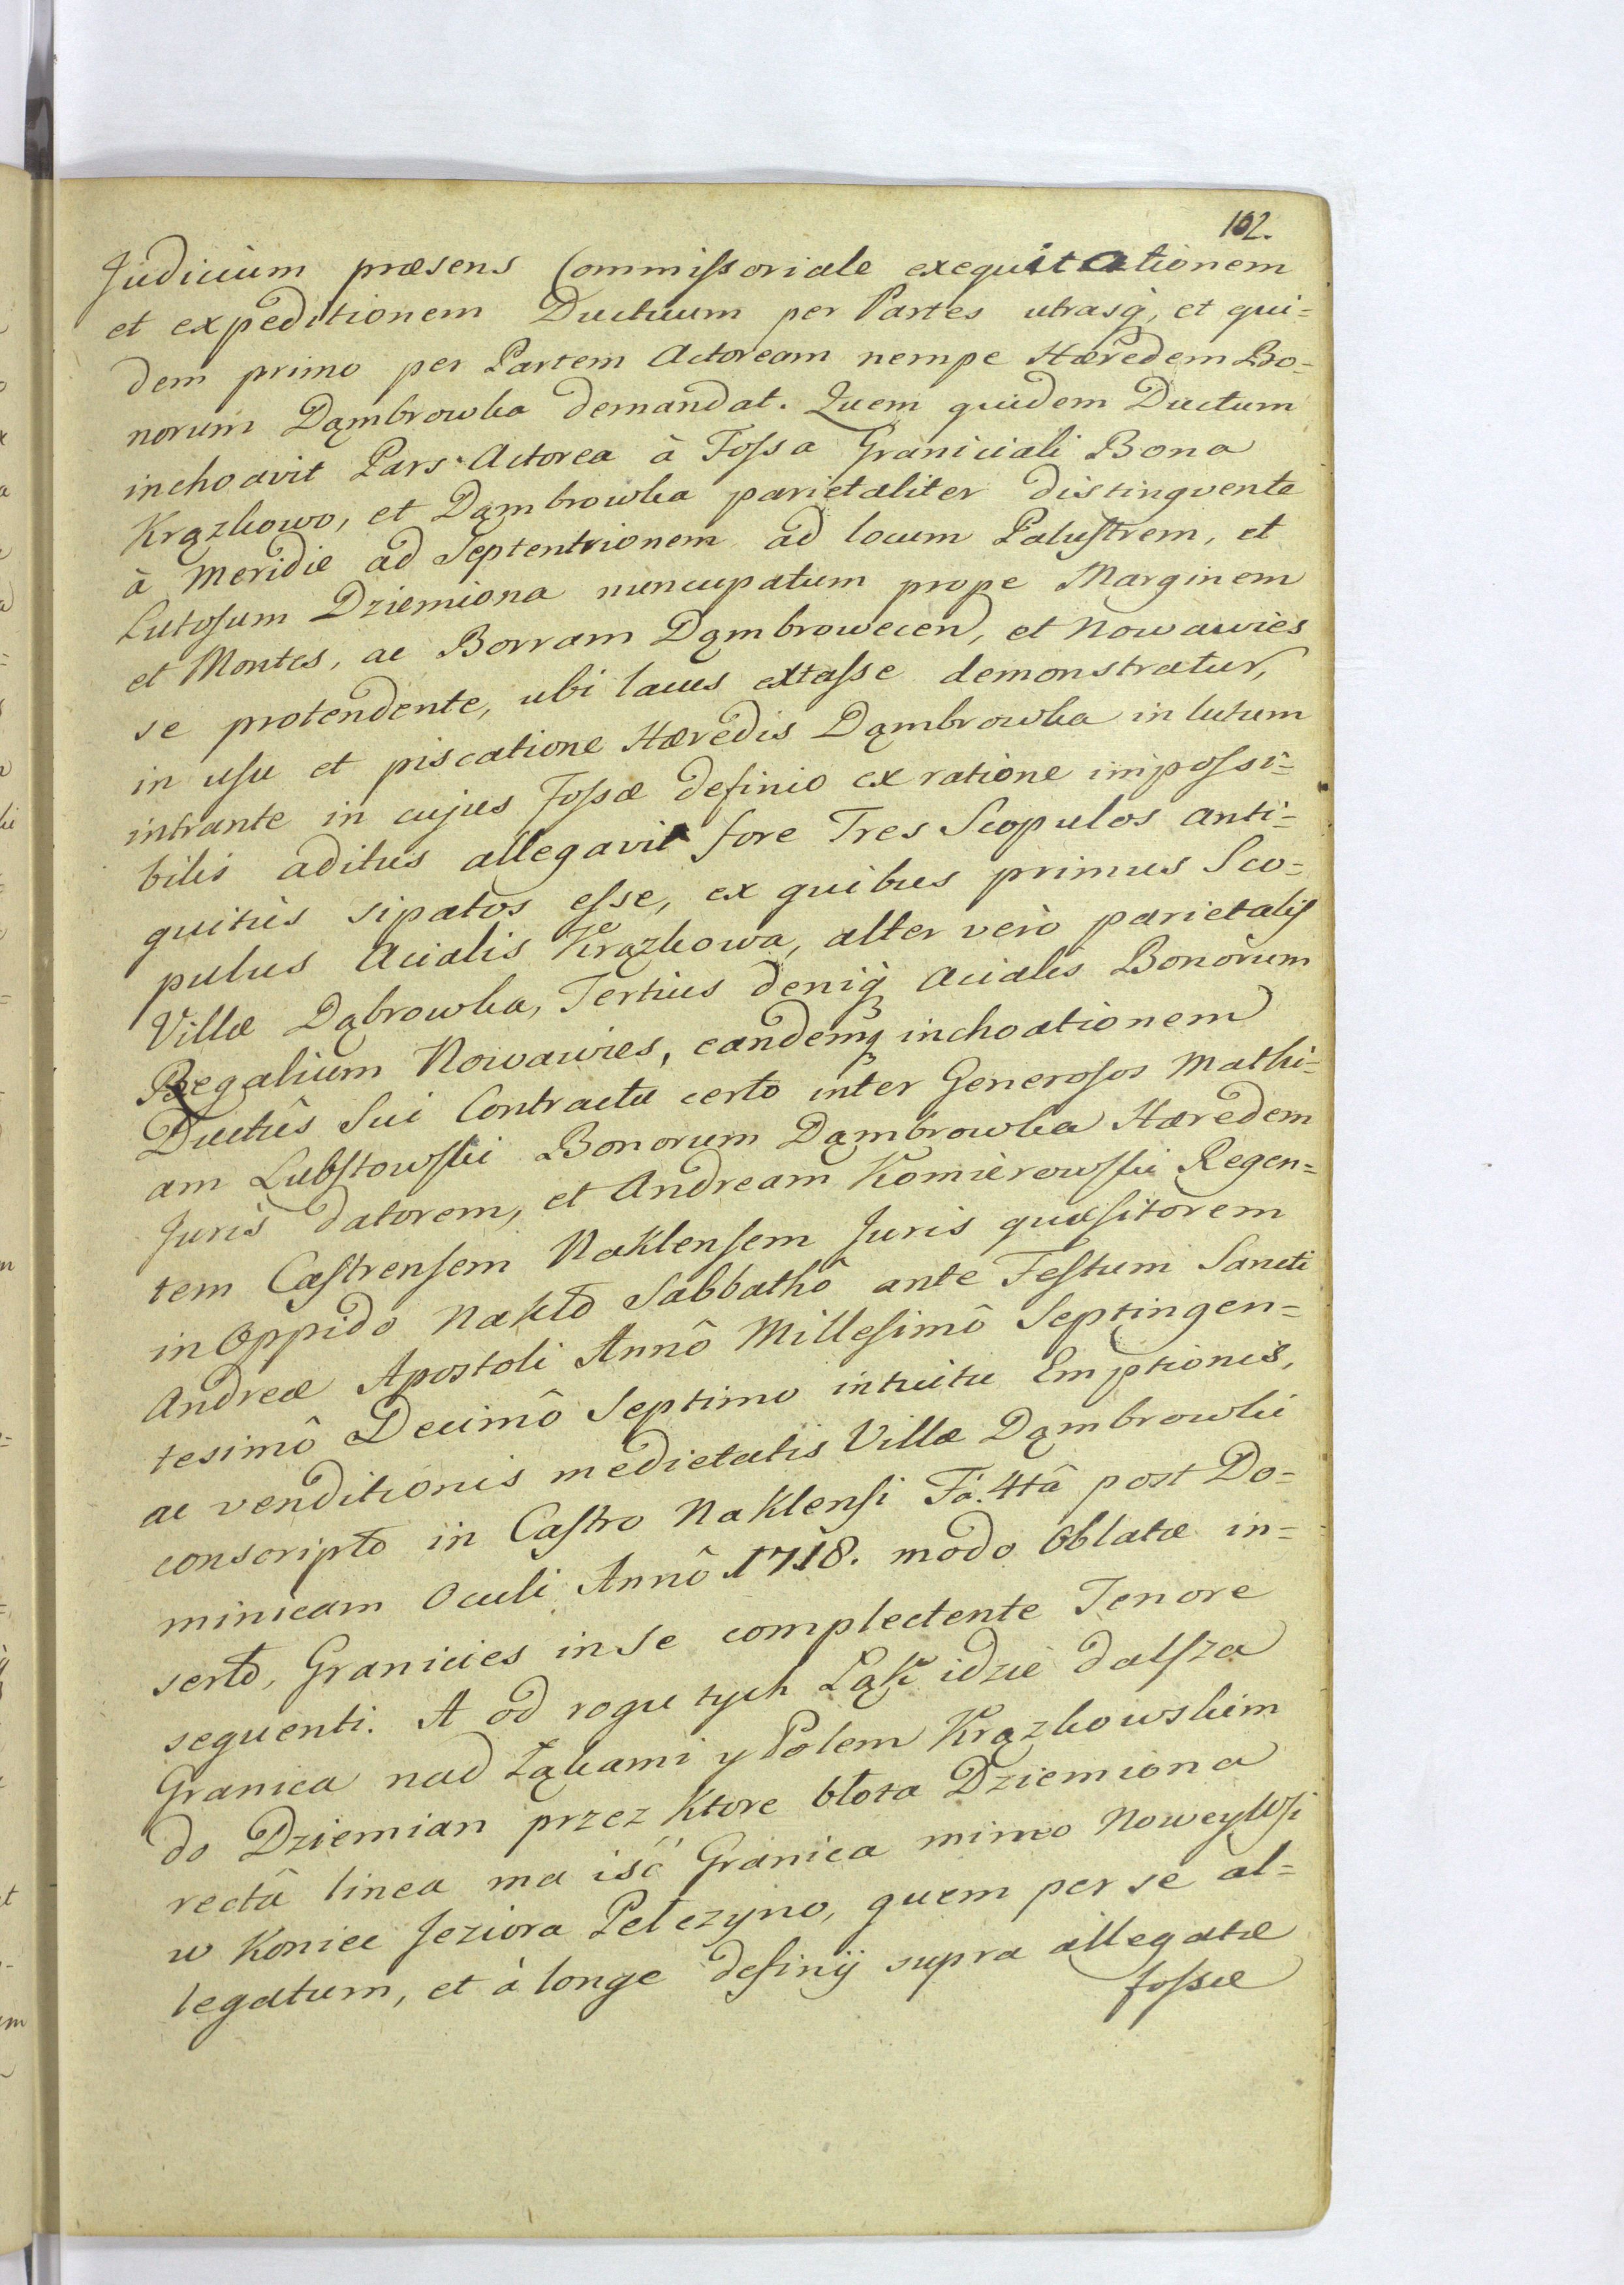 102.
Judicium præsens Commissoriale exequitationem
et expeditionem Ductuum per Partes utrasq, et qui=
dem primo per Partem Actoream nempe Hæredem Bo=
norum Dąmbrowka demandat. Quem quidem Ductum
inchoavit Pars Actorea à Fossa Graniciali Bona
Krązkowo, et Dąmbrowka parietaliter distingvente
à Meridie ad Septentrionem ad locum Palustrem, et
Lutosum Dziemiona nuncupatum prope Marginem
et Montes, ac Borram Dąmbrowecen, et Nowawies
se protendente, ubi lacus extasse demonstratur,
in usu et piscatione Hæredis Dąmbrowka in lutum
intrante in cujus Fossæ definio ex ratione impossi=
bilis aditus allegavit fore Tres Scopulos anti=
quitùs sipatos esse, ex quibus primus Sco=
pulus Acialis Krązkowa, alter verò parietalis
Villæ Dąbrowka, Tertius deniq Acialis Bonorum
Regalium Nowawies, eandemq inchoationem
Ductûs Sui Contractu certo inter Generosos Mathi=
am Lubstowski Bonorum Dąmbrowka Hæredem
Juris datorem, et Andream Komierowski Regen=
tem Castrensem Naklensem Juris quæsitorem
in Oppido Nakło Sabbathô ante Festum Sancti
Andreæ Apostoli Annô Millesimô Septingen=
tesimô Decimô Septimo intuitu Emptionis,
ac venditionis medietatis Villæ Dąmbrowki
conscripto in Castro Naklensi Fâ. 4tâ post Do=
minicam Oculi Annô 1718. modo Oblatæ in=
serto, Granicies in se complectente Tenore
sequenti. A od rogu tych Łąk idzie dalsza
Granica nad Łąkami y Polem Krązkowskim
do Dziemian przez ktore błota Dziemiona
rectâ linea ma iść Granica mimo Nowey Wsi
w koniec Jeziora Pełczyno, quem per se al=
legatum, et à longe definij supra allegatæ
fossæ